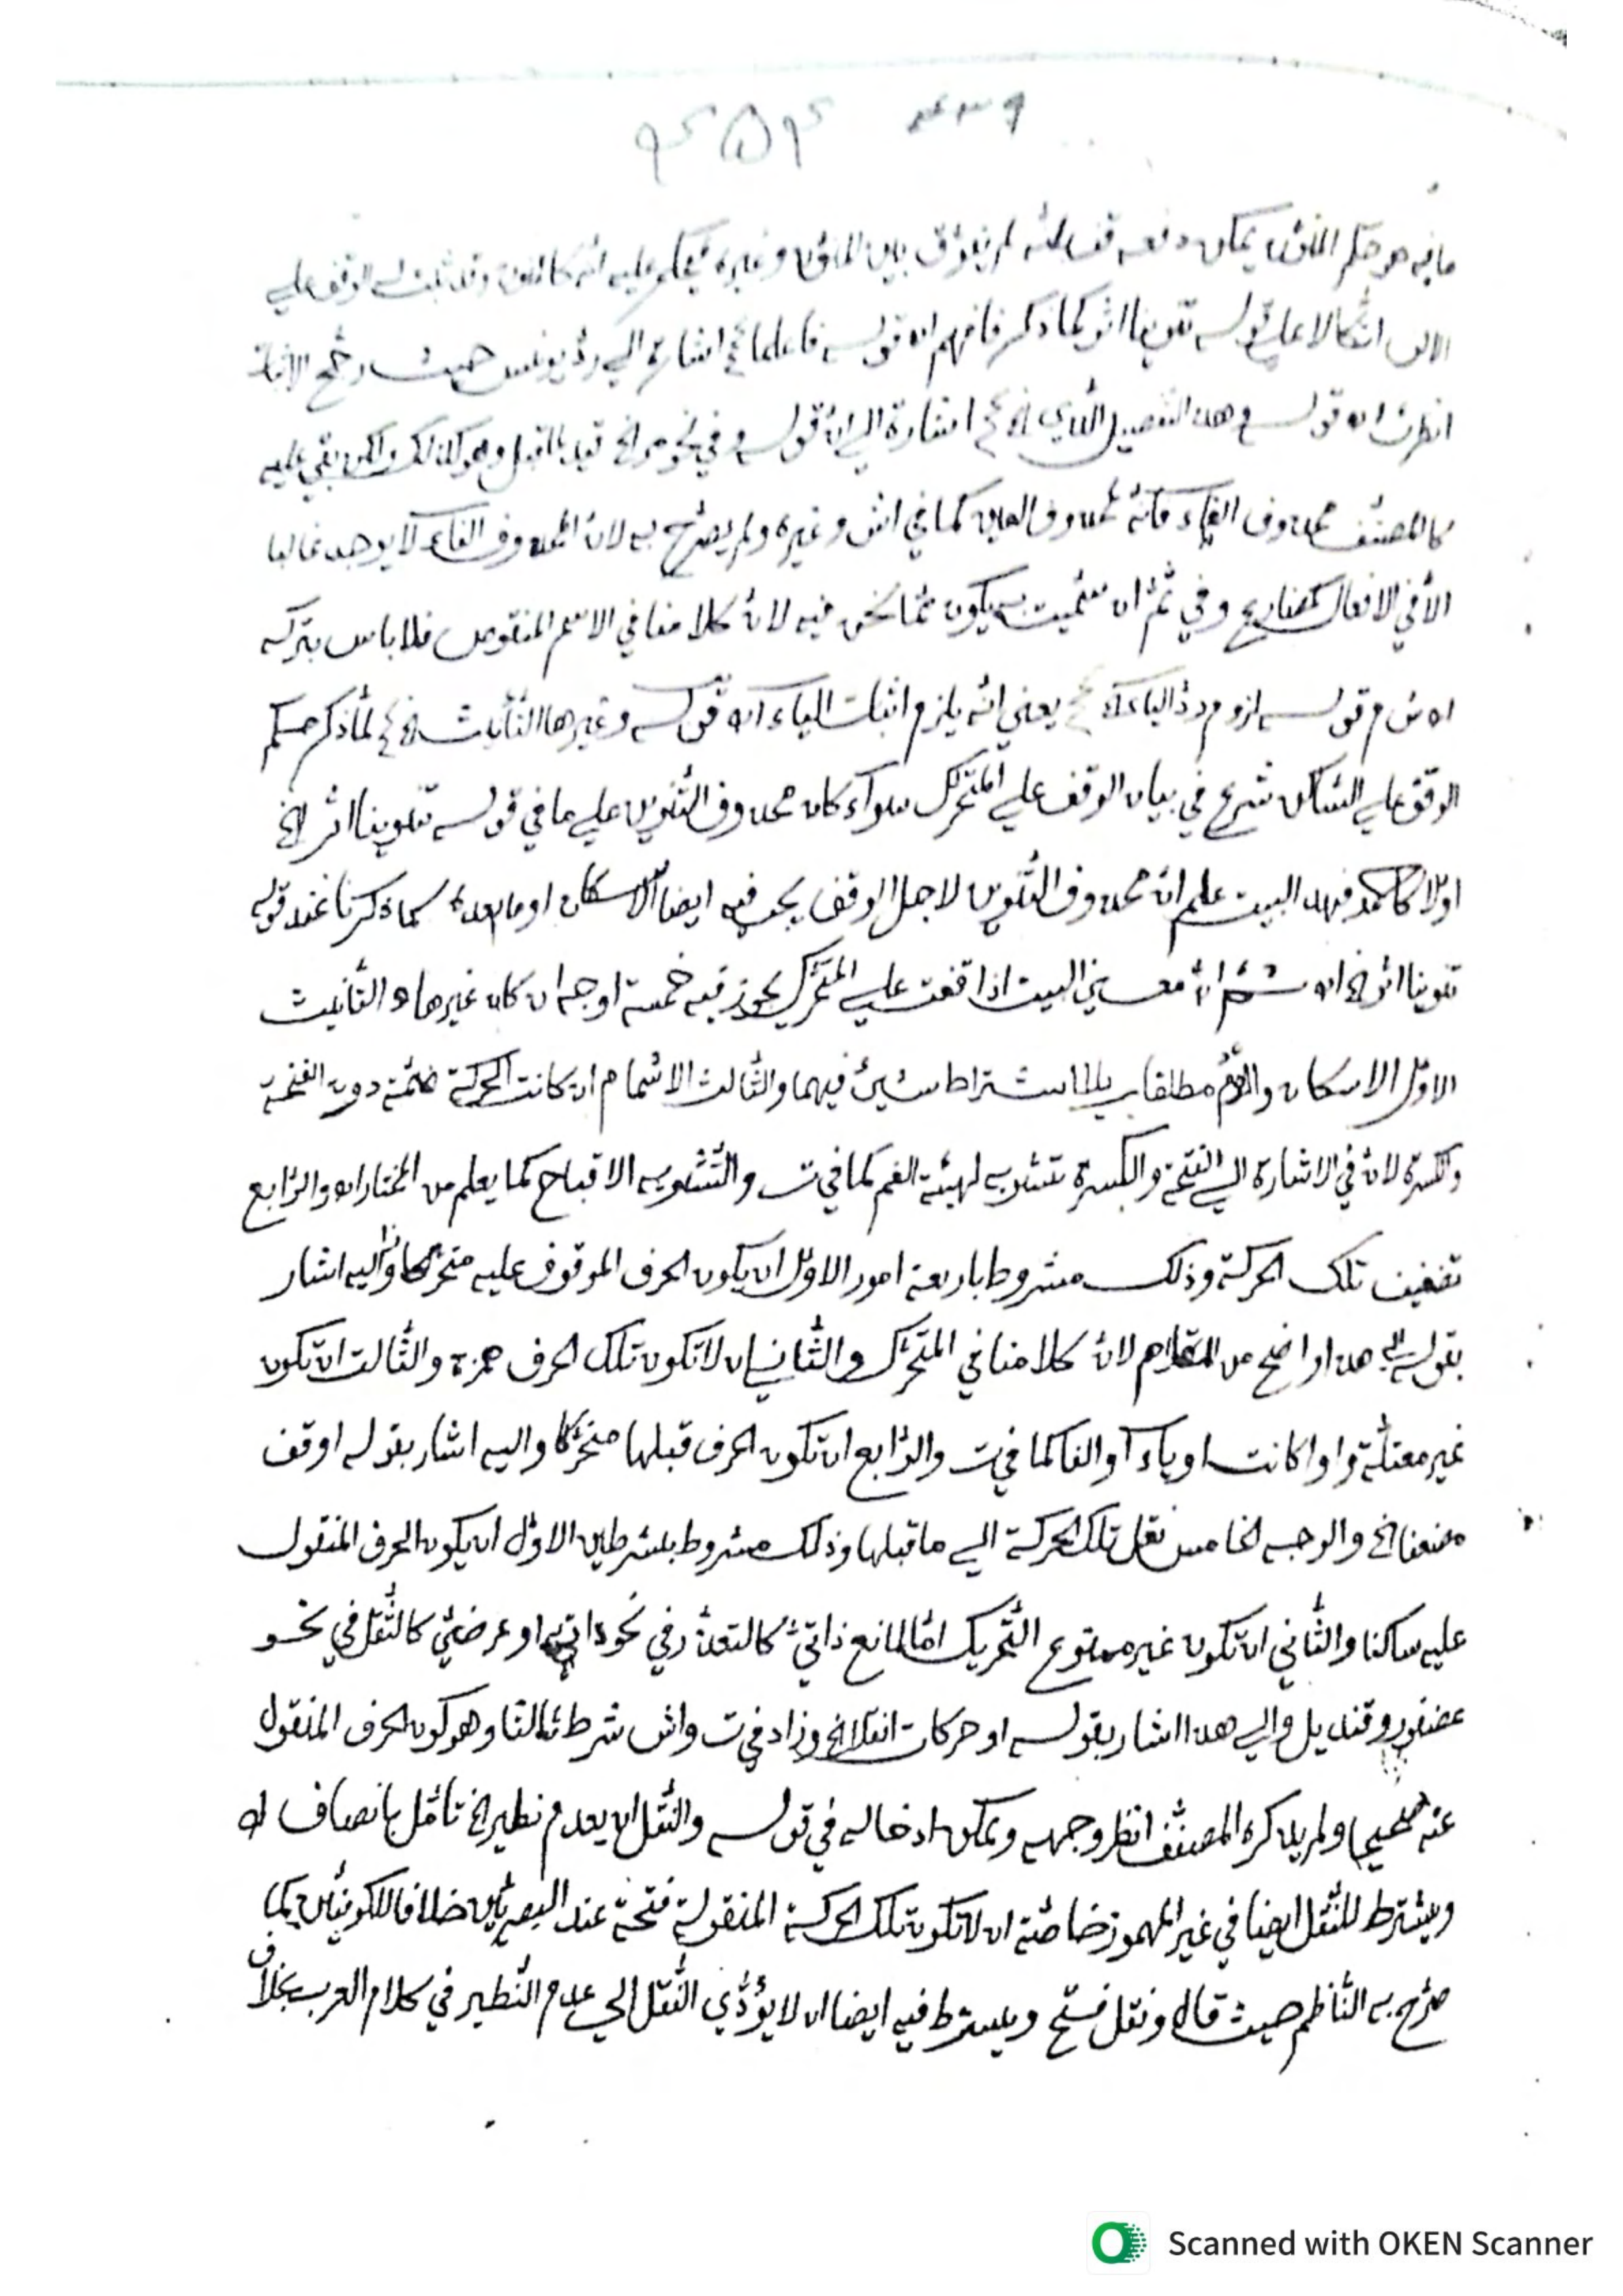 ما فيه هو حكم المنون يمكن دفعه بانه لم يفرق بين المنون وغيره فيحكم عليه انه كالمنون وقد ثبت له الوقف عليه
اتكالا على قوله تنوينا اثر كما ذكر فافهم اه قوله فاعلما اشارة الي رد يونس حيث رجح الاثبات
انظرت اه قوله وهذا التفصيل الذي الخ اشارة الي ان قوله وفي نحو مر الخ قيد لما قبل وهو كذلك ولكن بقي عليه
كالمصنف محذوف الفاء فانه كمحذوف العين كما في اش وغيره ولم يصرح به لان المحذوف الفاء لا يوجد غالبا
الا في الافعال كمضارع وفي ثم ان سميت به يكون مما نحن فيه لان كلامنا في الاسم المنقوص فلا باس بتركه
اه ش م قوله لزوم رد الياء يعني انه يلزم اثبات الياء اه قوله وغيرها التأنيث الخ لما ذكر حكم
الوقف علي الساكن شرع في بيان الوقف علي المتحرك سواء كان محذوف التنوين علي ما في قوله تنوينا اثر الخ
اولا كاحمد فبهذا البيت علم ان محذوف التنوين لاجل الوقف يجب فيه ايضا الاسكان او ما بعده كما ذكرنا عند قوله
تنوينا اثر الخ اه ثم ان معني البيت اذا وقفت علي المتحرك يجوز فيه خمسة اوجه ان كان غير هاء التأنيث
الاول الاسكان والروم مطلقا بلا اشتراط شيئ فيهما والثالث الاشمام ان كانت الحركة ضمة دون الفتحة
والكسرة لان في الاشارة الي الفتحة والكسرة تشويه لهيئة الفم كما في ت والتشويه الاقباح كما يعلم من المختار اه والرابع
تضعيف تلك الحركة وذلك مشروط باربعة امور الاول ان يكون الحرف الموقوف عليه متحركا واليه اشار
بقوله هذا واضح من المقام لان كلامنا في المتحرك والثاني ان لا تكون تلك الحرف همزة والثالث ان تكون
غير معتلة واوا كانت او ياء او الفا كما في ت والرابع ان تكون الحرف قبلها متحركا واليه اشار بقوله او قف
مضعفا الخ والوجه الخامس نقل تلك الحركة الي ما قبلها وذلك مشروط بشرطين الاول ان يكون الحرف المنقول
عليه ساكنا والثاني ان تكون غير ممنوع التحريك اما لمانع ذاتي كالتعذر في نحو او عرضي كالثقل في نحو
عصفور وقنديل والي هذا اشار بقوله او حركات انقلا الخ وزاد في ت واش شرطا ثالثا وهو كون الحرف المنقول
عنه صحيحا ولم يذكره المصنف انظر وجهه ويمكن ادخاله في قوله والنقل ان يعدم نظير الخ تأمل بانصاف اه
ويشترط للنقل ايضا في غير المهموز خاصة ان لا تكون تلك الحركة المنقولة فتحة عند البصريين خلافا للكوفيين كما
صرح به الناظم حيث قال ونقل فتح ويشترط فيه ايضا ان لا يؤدي النقل الي عدم النظير في كلام العرب بخلاف
Scanned with OKEN Scanner